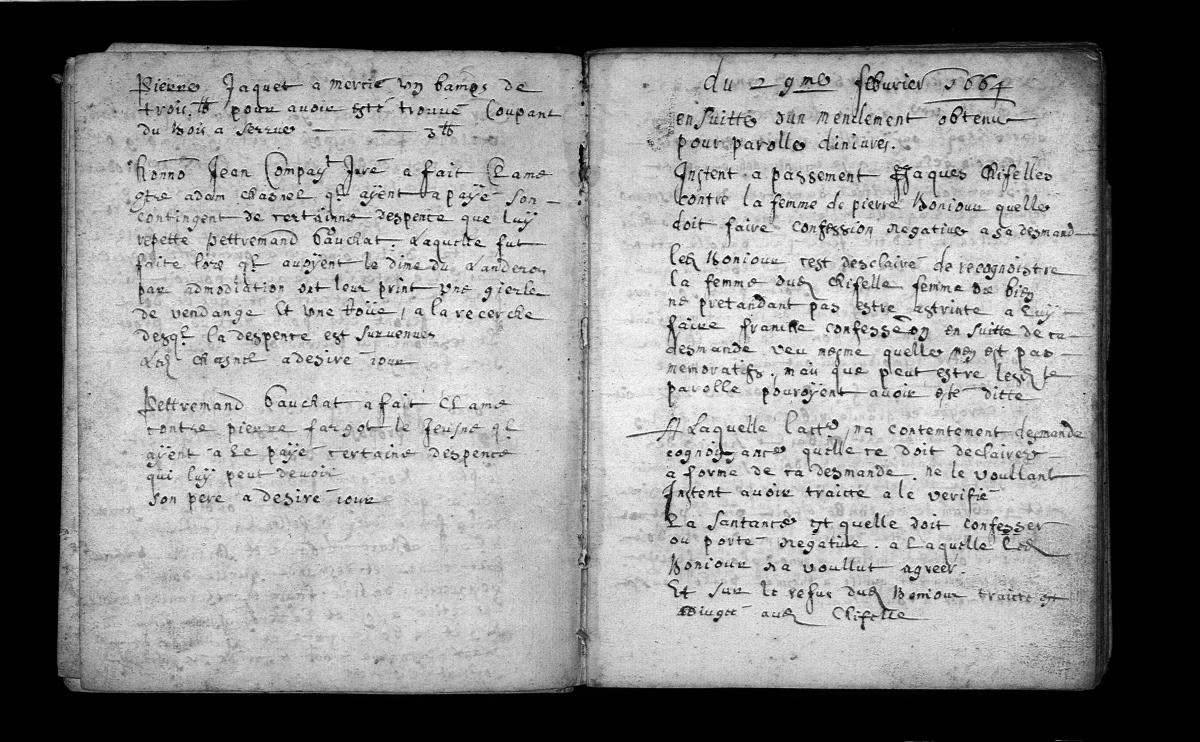 Pierre Jaquet a mercié un bamps de
trois lb pour avoir esté trouvé Coupant
du bois a Serrue — — 3 lb
honno Jean Compayt Juré a fait Clame
gtre adam Chasnel ql ayent a payé son
contingent de certainne despence que luy
repette Pettremand bauchat. Laquelle fut
faite lors ql avoyent le dime du Landeron
par admodiation ont leur print une gierle
de vendange Et une , a la recerche
desql la despence est survenues
Led Chasnel a desiré iour
Pettremand bauchat a fait Clame
contre pierre fargot le Jeusne ql
ayent a Le payé certaine despence
qui luy peut devoir
son pere a desiré iour
du 29me febvrier 1664
en suitte dun mendement obtenu
pour parolle diniures.
Instent a passement Jaques Chifelles
contre la femme de pierre Boniour quelle
doit faire confession negative a sa desmand
led Boniour cest desclairé de recognoistre
la femme dud Chifelle femme de bien
ne pretandant pas estre astrinte a luy
faire franche confession en suitte de sa
desmande veu mesme quelle nen est pas
memoratifs, mais que peut estre lesd te
parolle pouroyent avoir esté ditte
A Laquelle lacte na contentement desmande
cognoissance quelle ce doit declairer
a forme de ca desmande, ne le voullant
Instent avoir traicte a le verifié
La santance est quelle doit confesser
ou porte negative. a laquelle led
Boniour na voullut agreer.
Et sur le refus dud Boniour traitte est
aud Chifelle